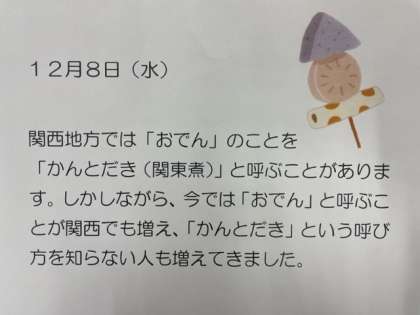 １２月８日（水）
関西地方では「おでん」のことを
「かんとだき（関東煮）」と呼ぶことがありま
す。しかしながら、今では「おでん」と呼ぶこ
とが関西でも増え、「かんとだき」という呼び
方を知らない人も増えてきました。